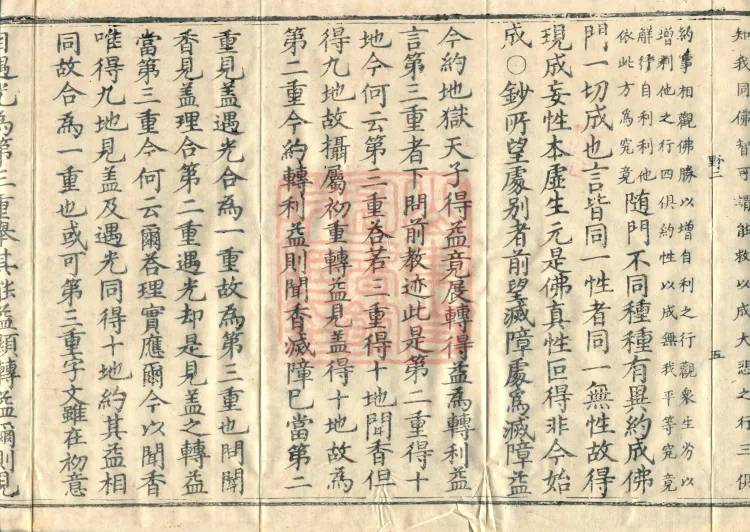 知我同佛智可謂能救以成大悲之行三俱
野二 五
約事相觀佛勝以增自利之行觀衆生劣以
增利他之行四俱約性以成無我平等究竟
解行自利利他
依此方為究竟
隨門不同種種有異約成佛
門一切成也言皆同一性者同一無性故得
現成妄性本虛生元是佛真性叵得非今始
成〇鈔所望處別者前望滅障處爲滅障益
今約地獄天子得益竟展轉得益爲轉利益
言第三重者下問前教迹此是第二重得十
地今何云第二重荅若三重得十地聞香但
得九地故攝屬初重轉益見盖得十地故爲
第二重今約轉利益則聞香滅障已當第二
重見盖遇光合為一重故為第三重也問聞
香見盖理合第二重遇光却是見盖之轉益
當第三重今何云爾荅理實應爾今以聞香
唯得九地見盖及遇光同得十地約其益相
同故合為一重也或可第三重字文雖在初意